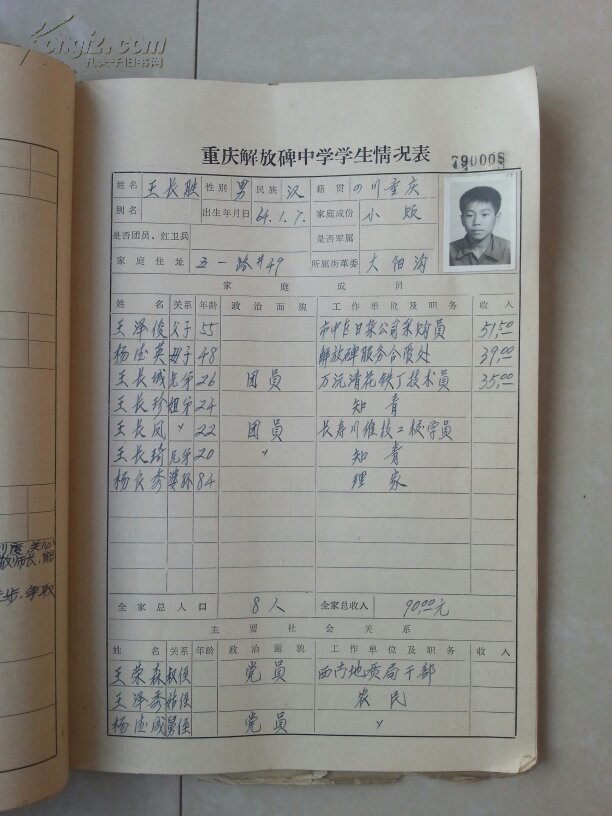 Kongfz.com
孔夫子旧书网
重庆解放碑中学学生情况表 790008
姓名 王长联 性别 男 民族 汉 籍贯 四川重庆
别名 出生年月日 64.1.7. 家庭成份 小贩
是否团员、红卫兵 是否军属
家庭住址 五一路#49 所属街革委 大阳沟
家庭成员
姓名 关系 年龄 政治面貌 工作单位及职务 收入
王泽俊 父子 55 市中区日杂公司采购员 51.50
杨德英 母子 48 解放碑服务合营处 39.00
王长城 兄弟 26 团员 技术员 35.00
王长珍 姐弟 24 知青
王长凤 〃 22 团员 长寿川维技工校学员
王长琦 兄弟 20 〃 知青
杨良秀 婆孙 84 理家
全家总人口 8人 全家总收入 90.00元
主要社会关系
姓名 关系 年龄 政治面貌 工作单位及职务 收入
王荣森 叔侄 党员 地质局干部
王泽秀 姑侄 农民
杨德成 舅侄 党员 〃
度,关心
敬师长,能
步,争取